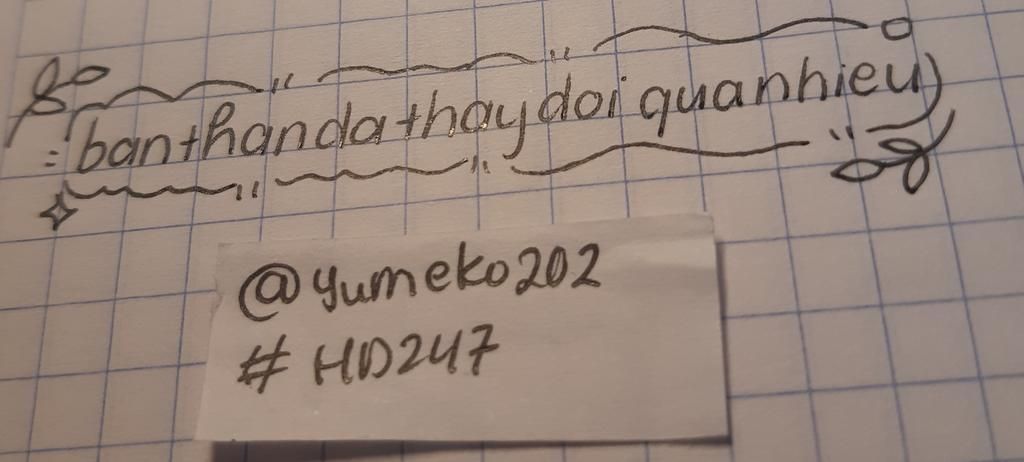 :banthandathaydoiquanhieu)
@yumeko202
#HD247